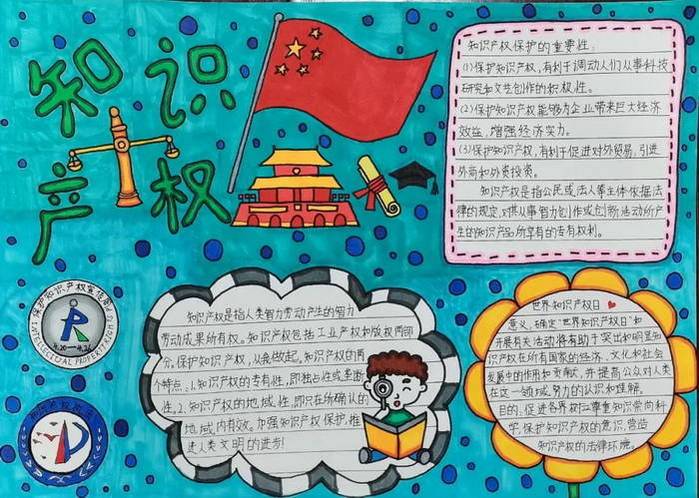 知识
产权
知识产权保护的重要性:
(1)保护知识产权,有利于调动人们从事科技
研究和文艺创作的积极性。
(2)保护知识产权能够为企业带来巨大经济
效益,增强经济实力。
(3)保护知识产权,有利于促进对外贸易,引进
外商和外资投资。
知识产权是指公民或法人等主体依据法
律的规定,对其从事智力创作或创新活动所产
生的知识产品所享有的专有权利。
保护知识产权宣传周
4.20—4.26
INTELLECTUAL PROPERTY RIGHT
知识产权是指人类智力劳动产生的智力
劳动成果所有权。知识产权包括工业产权和版权两部
分,保护知识产权,从我做起。知识产权的两
个特点:1.知识产权的专有性,即独占性或垄断
性,2.知识产权的地域性,即只在所确认的
地域内有效。加强知识产权保护,推
进人类文明的进步!
世界知识产权日
意义:确定"世界知识产权日"和
开展有关活动将有助于突出和明显知
识产权在所有国家的经济、文化和社会
发展中的作用和贡献,并提高公众对人类
在这一领域努力的认识和理解。
目的:促进各界树立尊重知识崇尚科
学,保护知识产权的意识,营造
知识产权的法律环境。